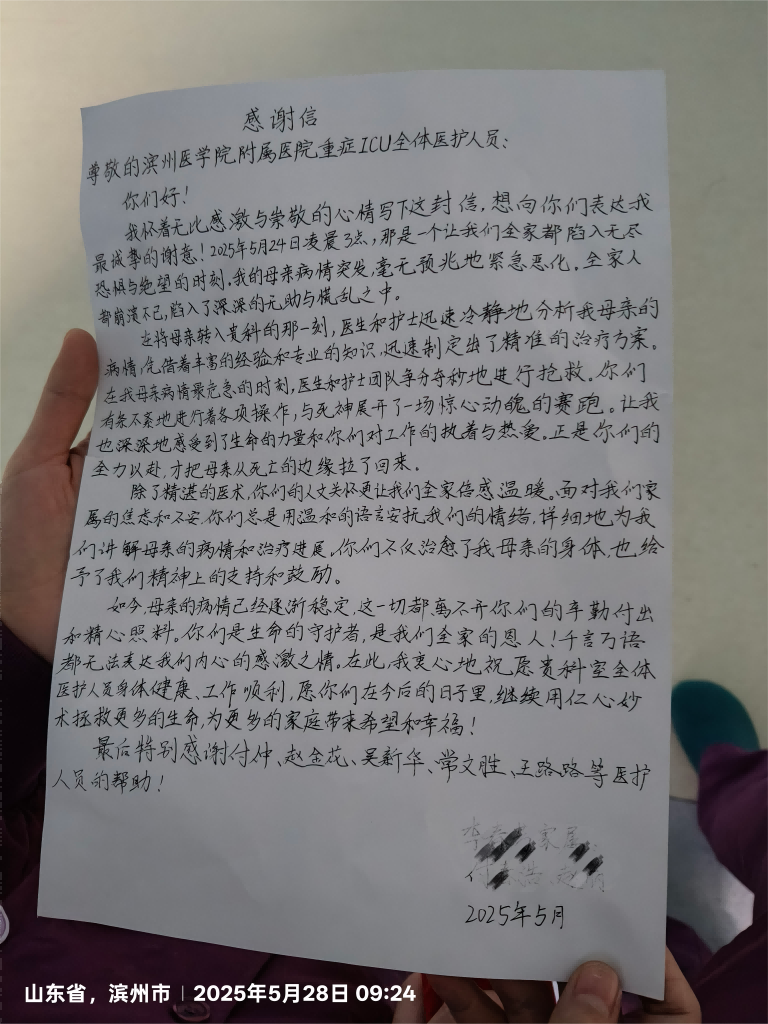 感谢信
尊敬的滨州医学院附属医院重症ICU全体医护人员:
你们好!
我怀着无比感激与崇敬的心情写下这封信,想向你们表达我
最诚挚的谢意!2025年5月24日凌晨3点,那是一个让我们全家都陷入无尽
恐惧与绝望的时刻.我的母亲病情突发,毫无预兆地紧急恶化。全家人
都崩溃不已,陷入了深深的无助与慌乱之中。
在将母亲转入贵科的那一刻,医生和护士迅速冷静地分析我母亲的
病情,凭借着丰富的经验和专业的知识,迅速制定出了精准的治疗方案。
在我母亲病情最危急的时刻,医生和护士团队争分夺秒地进行抢救。你们
有条不紊地进行着各项操作,与死神展开了一场惊心动魄的赛跑。让我
也深深地感受到了生命的力量和你们对工作的执着与热爱.正是你们的
全力以赴,才把母亲从死亡的边缘拉了回来.
除了精湛的医术,你们的人文关怀更让我们全家倍感温暖。面对我们家
属的焦虑和不安,你们总是用温和的语言安抚我们的情绪,详细地为我
们讲解母亲的病情和治疗进展.你们不仅治愈了我母亲的身体,也给
予了我们精神上的支持和鼓励。
如今,母亲的病情已经逐渐稳定,这一切都离不开你们的辛勤付出
和精心照料。你们是生命的守护者,是我们全家的恩人!千言万语
都无法表达我们内心的感激之情.在此,我衷心地祝愿贵科室全体
医护人员身体健康、工作顺利,愿你们在今后的日子里,继续用仁心妙
术拯救更多的生命,为更多的家庭带来希望和幸福!
最后特别感谢付仲、赵金花、吴新华、常文胜、王路路等医护
人员的帮助!
家属
2025年5月
山东省,滨州市 | 2025年5月28日 09:24